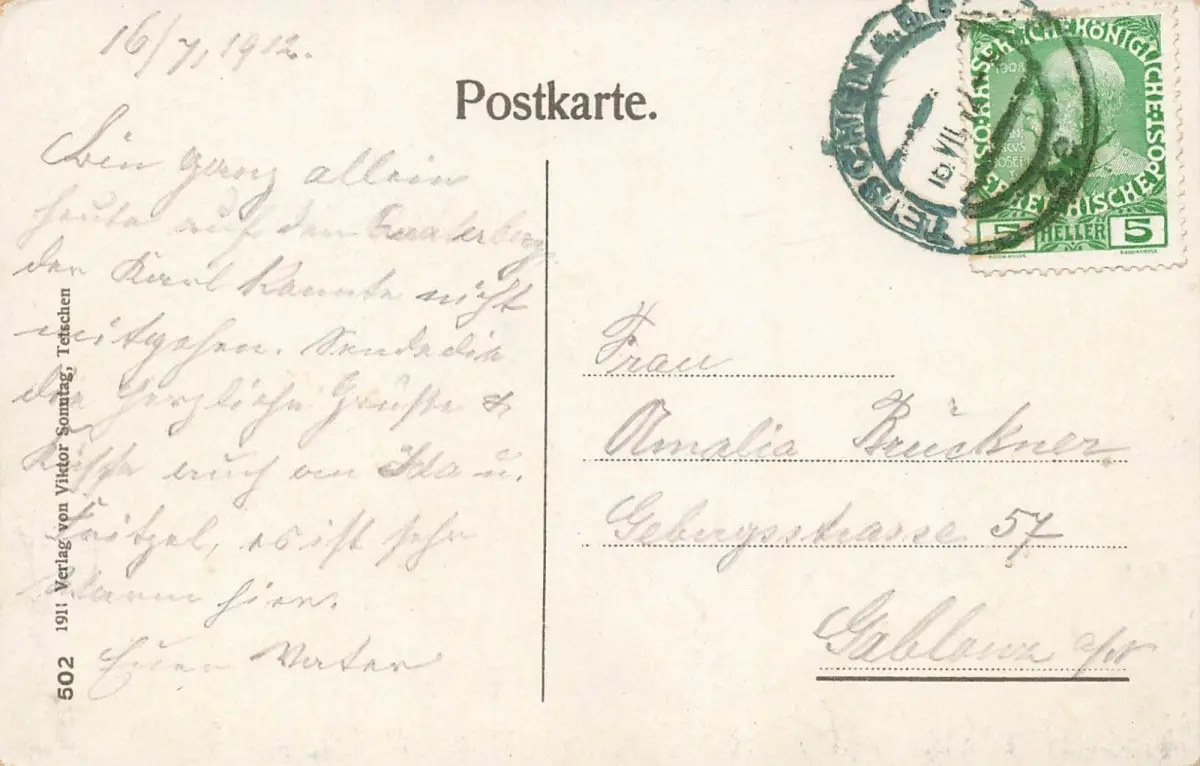 16/7, 1912.
Postkarte.
Bin ganz allein
heute auf dem
der Karl kannte nicht
mitgehen. Sende dir
die herzliche Grüße &
Küsse auch an Ida u.
Fritzel, es ist sehr
warm hier.
Euer Vater
502 1911 Verlag von Viktor Sonntag, Tetschen
TETSCHEN A.E.
16. VII
KAISERLICHE KÖNIGLICHE
ÖSTERREICHISCHE POST
1908
JOSEPH
5 HELLER 5
Frau
Amalia Brückner
Gebirgsstrasse 57
Gablonz a/N